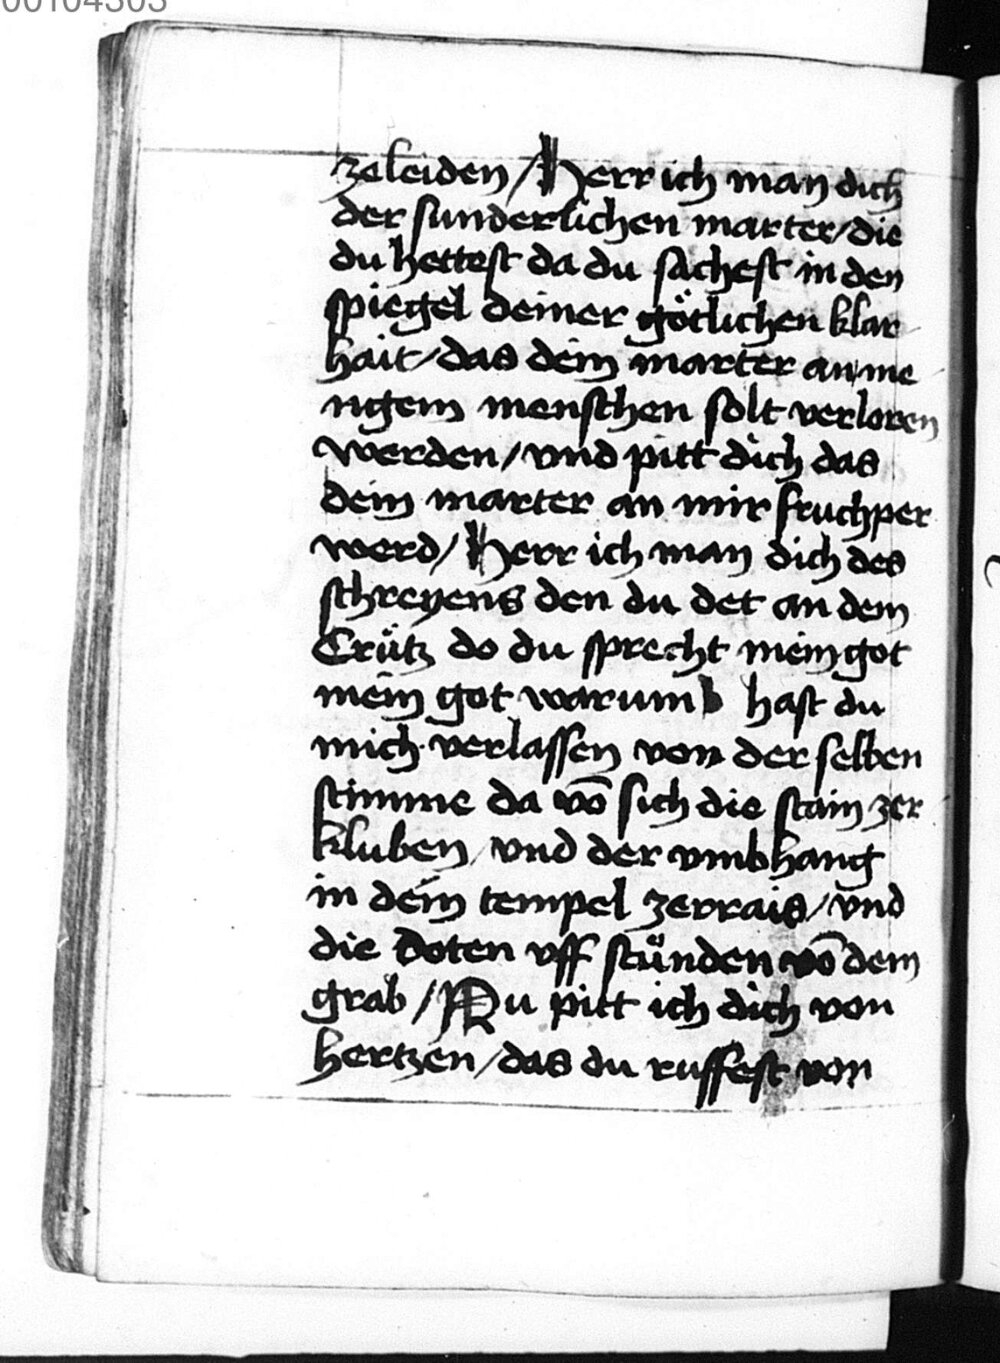 00104303
zeleiden / Herr ich man dich
der sunderlichen marter / die
du hettest da du sachest in den
spiegel deiner götlichen klar
hait / das dein marter an me
nigem menschen solt verloren
werden / vnd pitt dich das
dein marter an mir fruchper
werd / Herr ich man dich des
schreyens den du det an dem
Crütz do du sprecht mein got
mein got warumb hast du
mich verlassen von der selben
stimme da vō sich die stain zer
kluben / vnd der vmbhang
in dem tempel zerrais / vnd
die doten vff stünden vō dem
grab / Nu pitt ich dich von
hertzen / das du ruffest von